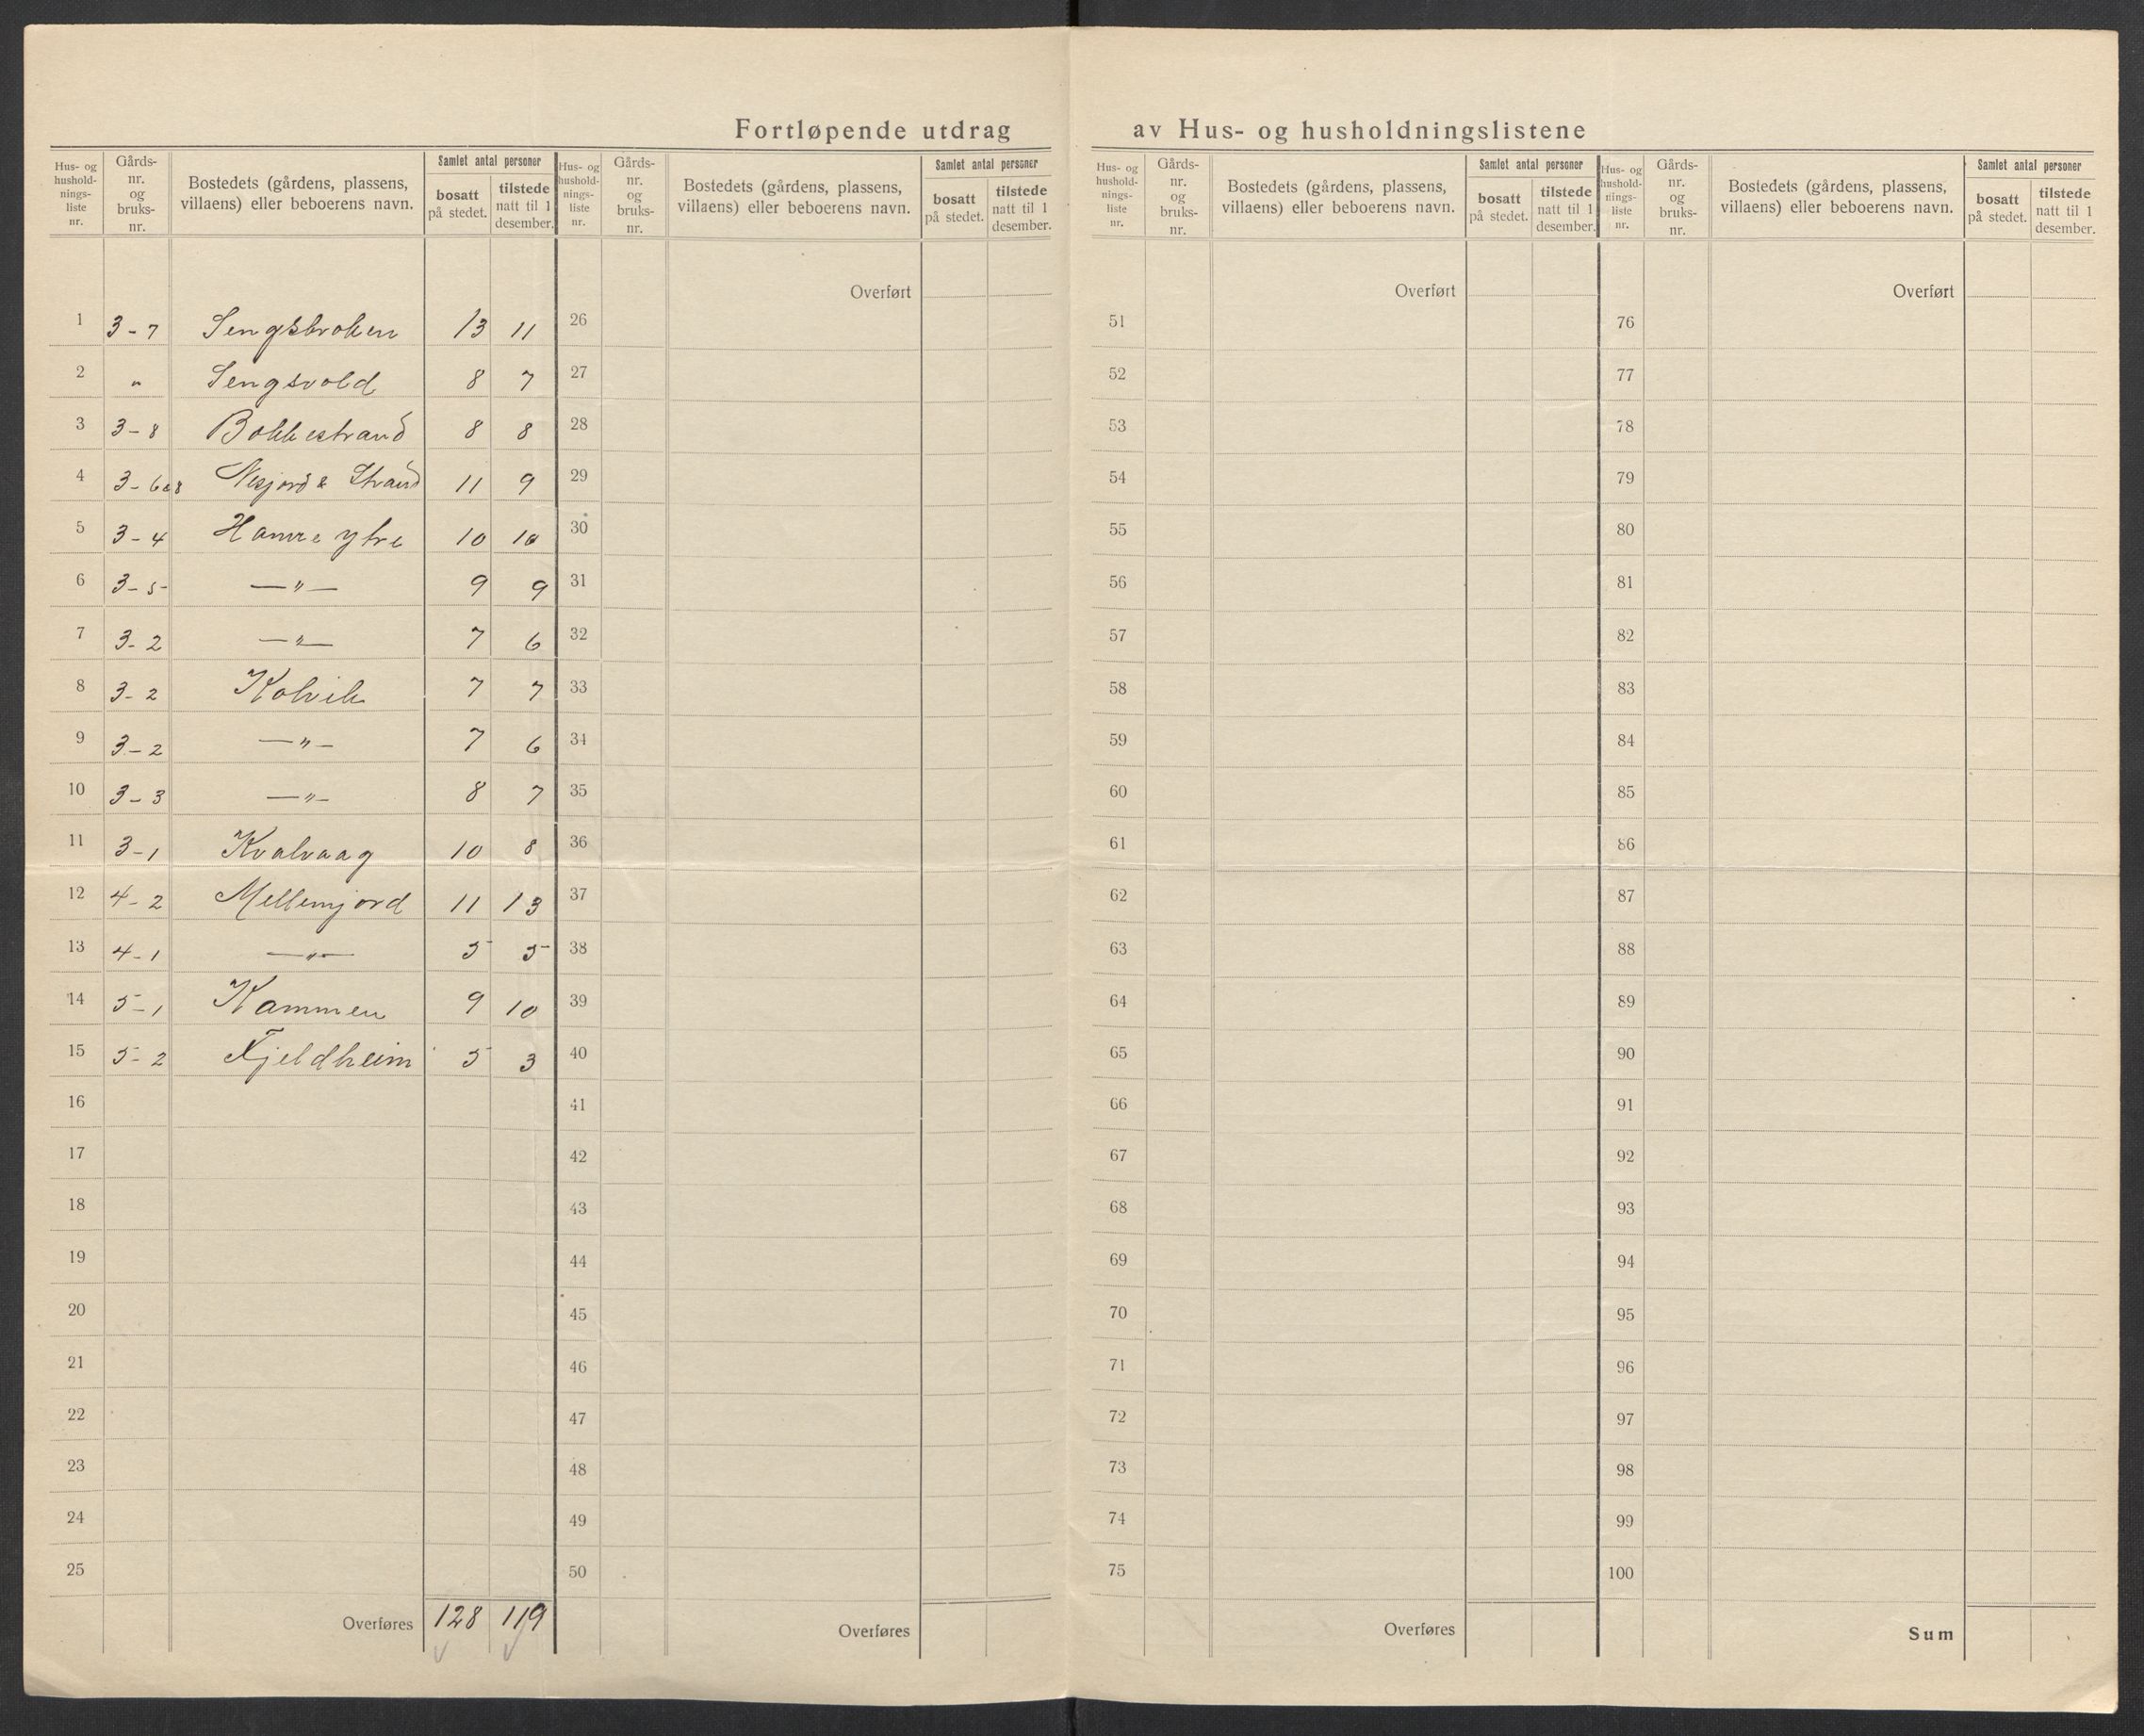 Fortløpende utdrag av Hus- og husholdningslistene
Hus- og husholdnings-liste nr. Gårds-nr. og bruks-nr. Bostedets (gårdens, plassens, villaens) eller beboerens navn. Samlet antal personer bosatt på stedet. tilstede natt til 1 desember.
1 3-7 Sengskroken 13 11
2 " Sengsvold 8 7
3 3-8 Bokkestrand 8 8
4 3-6&8 Nesjord & Strand 11 9
5 3-4 Hamre ytre 10 10
6 3-5 —"— 9 9
7 3-2 —"— 7 6
8 3-2 Kolvik 7 7
9 3-2 —"— 7 6
10 3-3 —"— 8 7
11 3-1 Kvalvaag 10 8
12 4-2 Mellemjord 11 13
13 4-1 —"— 5 5
14 5-1 Kammen 9 10
15 5-2 Fjeldheim 5 3
16
17
18
19
20
21
22
23
24
25
Overføres 128 119
Hus- og husholdnings-liste nr. Gårds-nr. og bruks-nr. Bostedets (gårdens, plassens, villaens) eller beboerens navn. Samlet antal personer bosatt på stedet. tilstede natt til 1 desember.
Overført
26
27
28
29
30
31
32
33
34
35
36
37
38
39
40
41
42
43
44
45
46
47
48
49
50
Overføres
Hus- og husholdnings-liste nr. Gårds-nr. og bruks-nr. Bostedets (gårdens, plassens, villaens) eller beboerens navn. Samlet antal personer bosatt på stedet. tilstede natt til 1 desember.
Overført
51
52
53
54
55
56
57
58
59
60
61
62
63
64
65
66
67
68
69
70
71
72
73
74
75
Overføres
Hus- og husholdnings-liste nr. Gårds-nr. og bruks-nr. Bostedets (gårdens, plassens, villaens) eller beboerens navn. Samlet antal personer bosatt på stedet. tilstede natt til 1 desember.
Overført
76
77
78
79
80
81
82
83
84
85
86
87
88
89
90
91
92
93
94
95
96
97
98
99
100
Sum